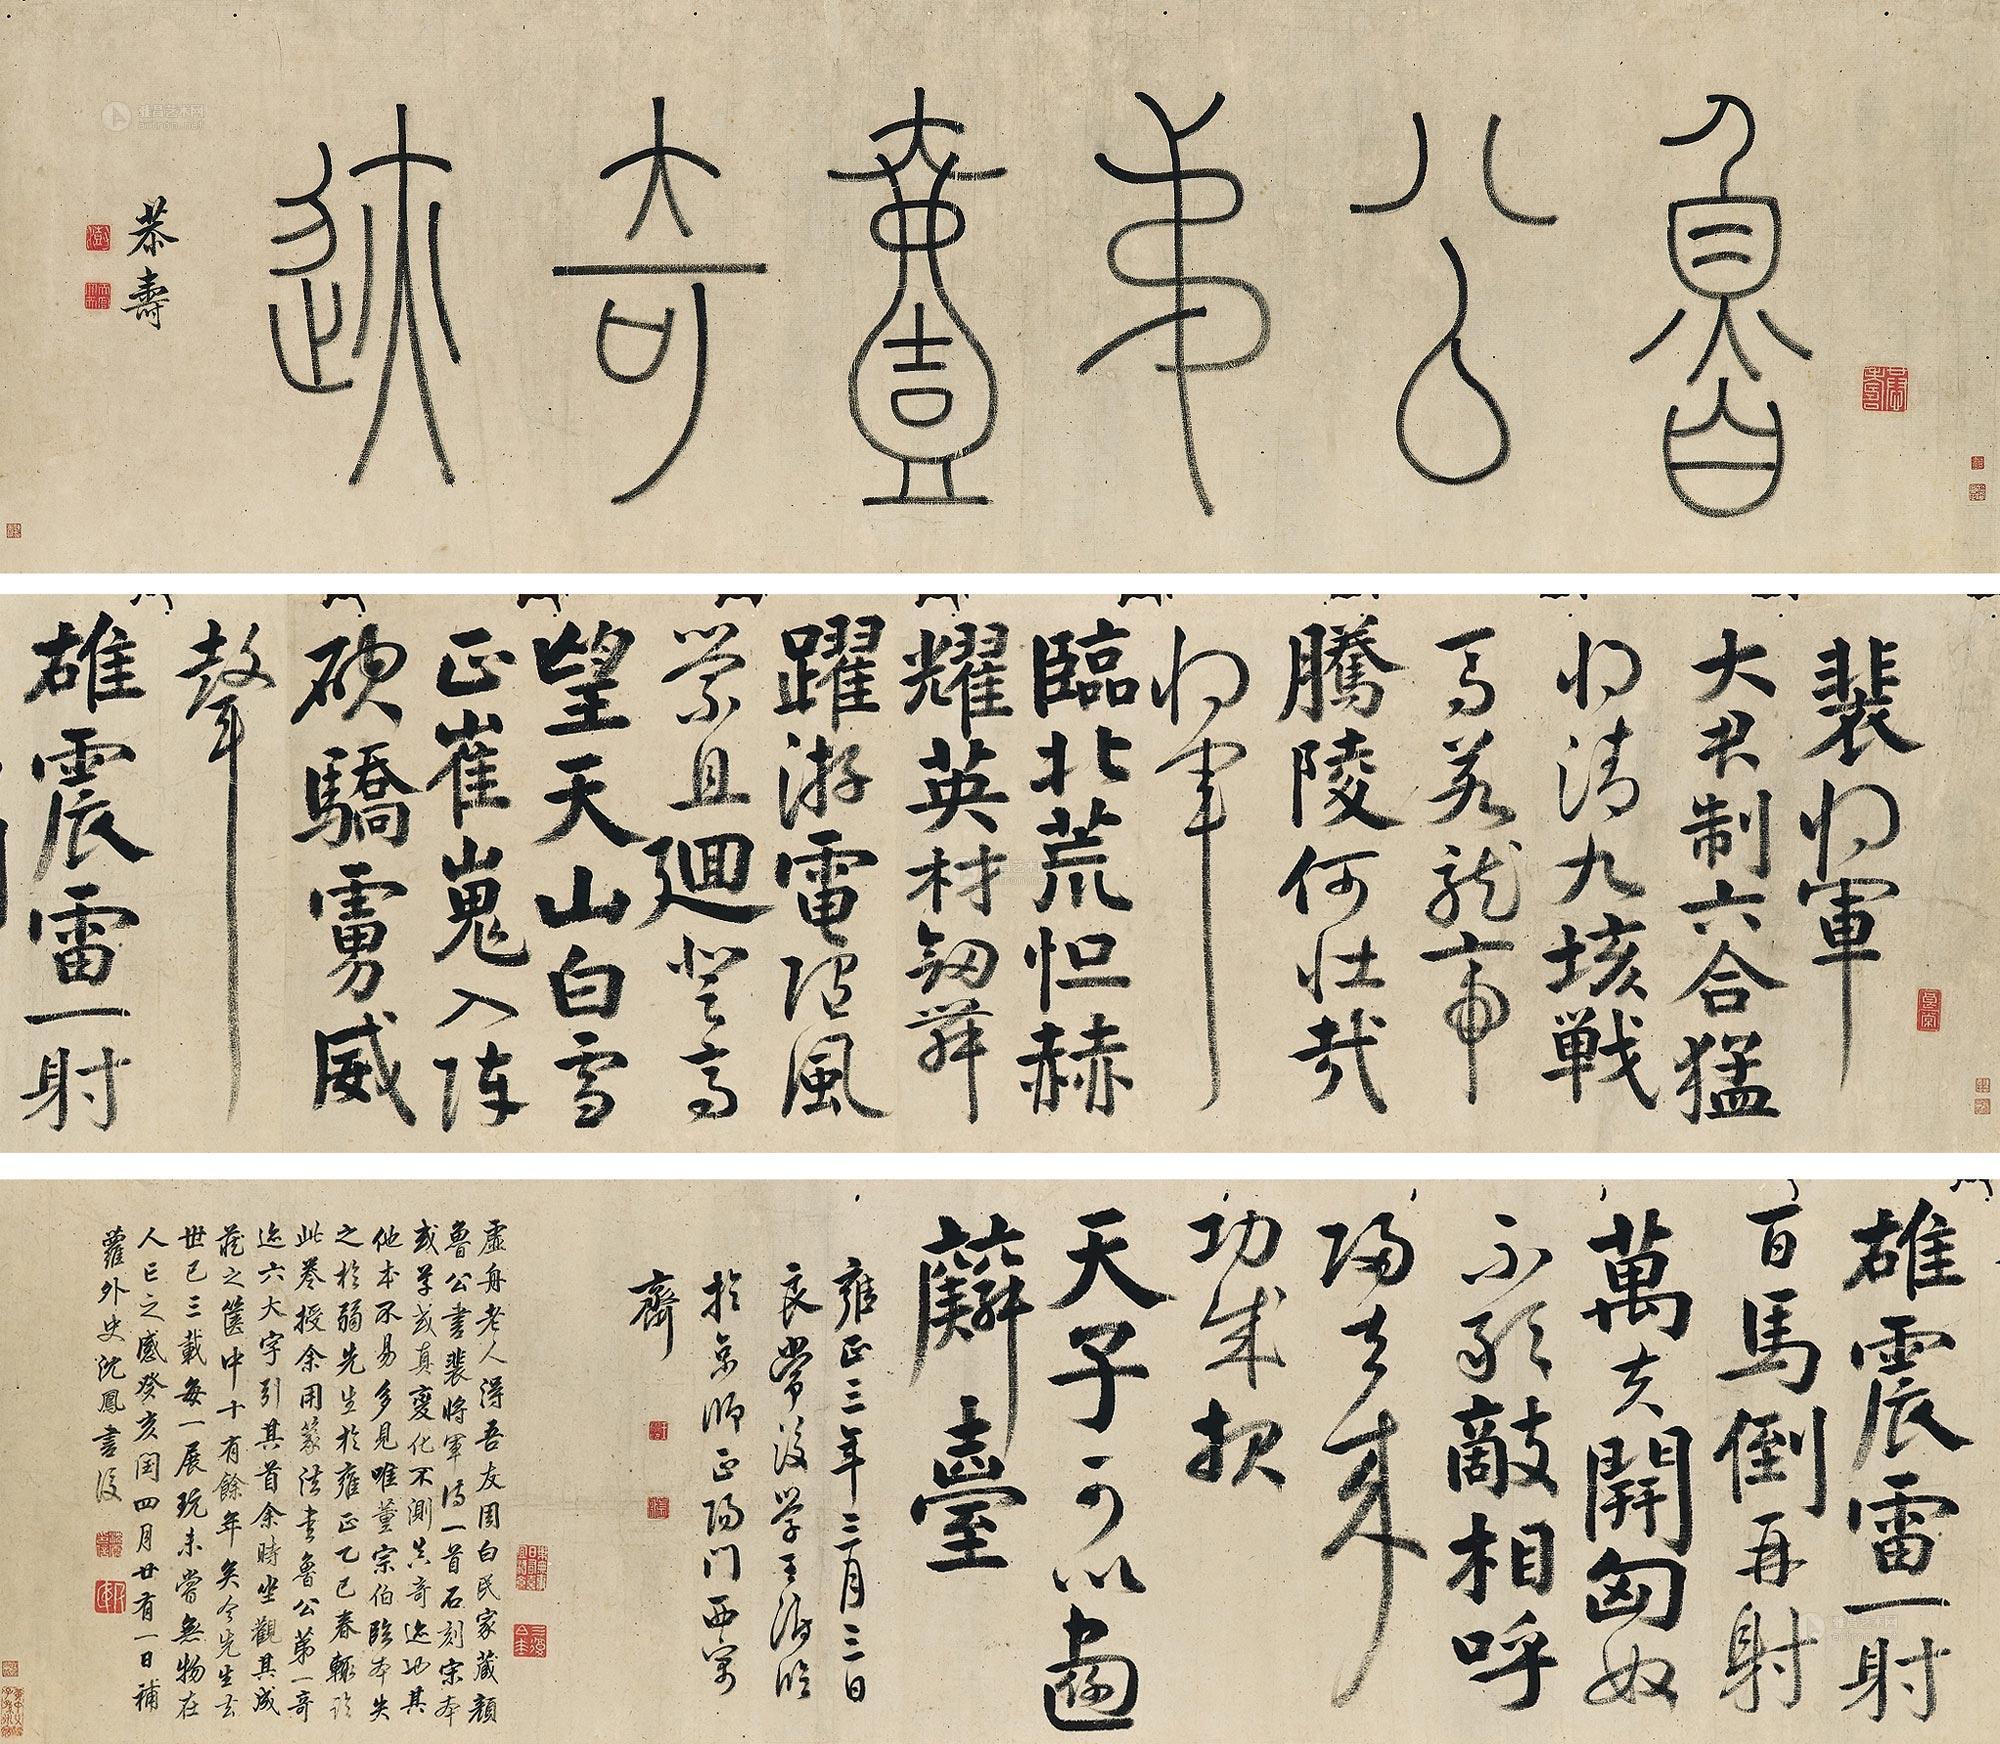 魯公弟壹奇迹
恭壽
雅昌艺术网
artron.net
裴将軍
大君制六合猛
将清九垓戦
馬若龍虎
騰陵何壮哉
将軍
臨北荒怛赫
耀英材劒舞
躍游電随風
縈且廻登高
望天山白雪
正崔嵬入陣
破驕虜威
聲
雄震雷一射
雄震雷一射
百馬倒再射
萬夫開匈奴
不敢敵相呼
歸去来
功成報
天子可以畫
麟臺
雍正三年三月三日
良常後學王澍臨
於京師正陽門西寓
齋
虛舟老人得吾友周白民家藏顏
魯公書裴將軍詩一首石刻宋本
或草或真變化不測真奇迹也其
他本不易多見唯董宗伯臨本失
之於弱先生於雍正乙巳春輒臨
此卷授余用篆法書魯公第一奇
迹六大字引其首余時坐觀其成
藏之篋中十有餘年矣今先生去
世已三載每一展玩未嘗無物在
人亡之感癸亥閏四月廿有一日補
蘿外史沈鳳書後